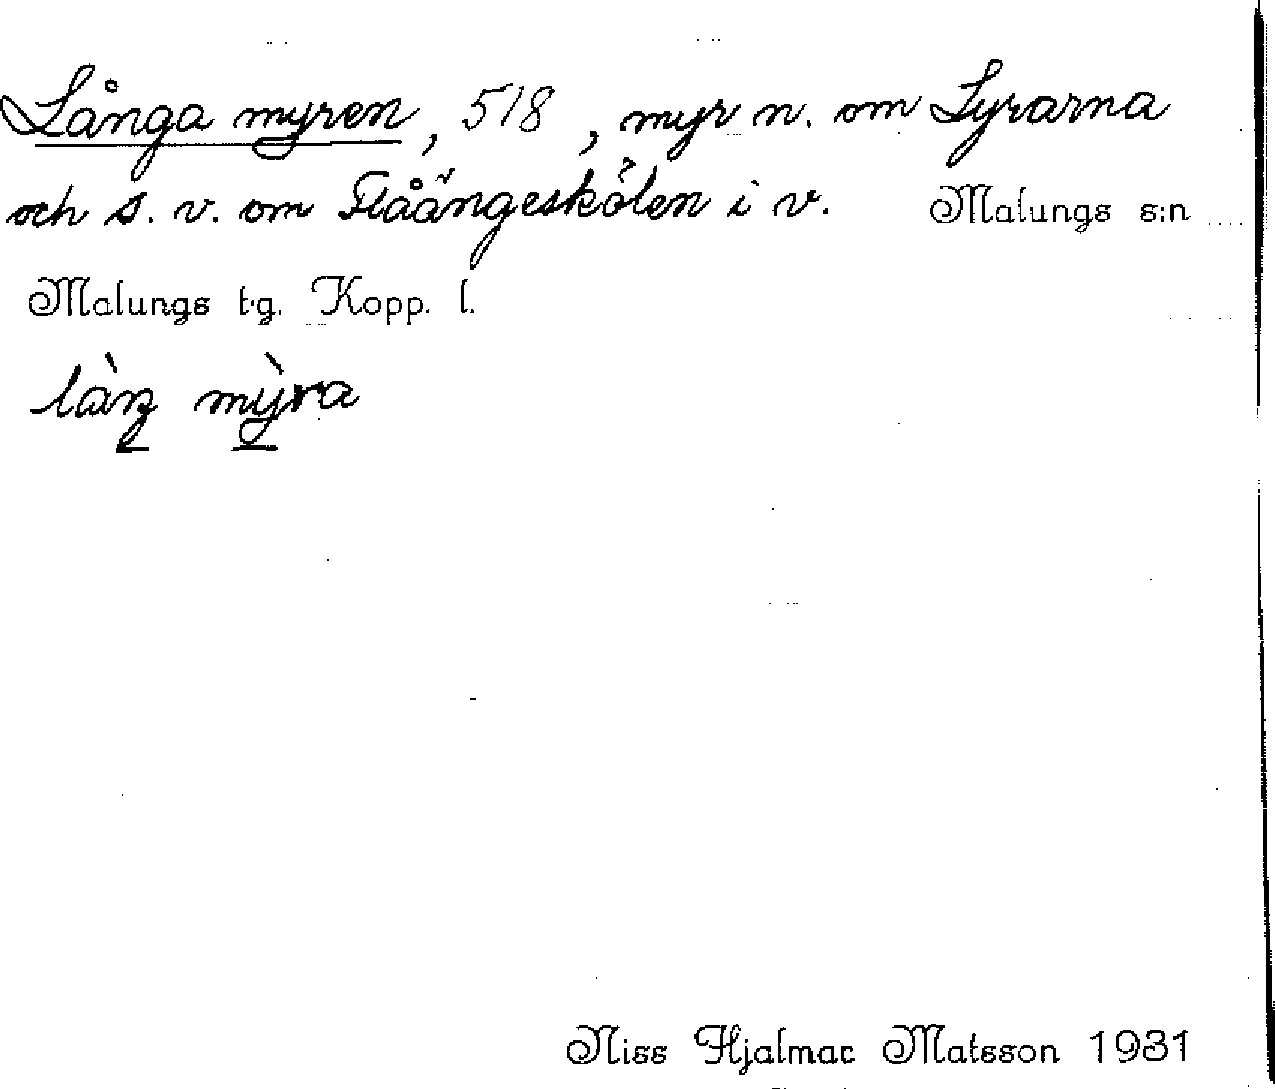 Långa myren, 518, myr n. om Lyrarna
och s. v. om Flåängeskölen i v. Malungs s:n
Malungs t.g. Kopp. l.
làŋ mỳra
Niss Hjalmar Matsson 1931